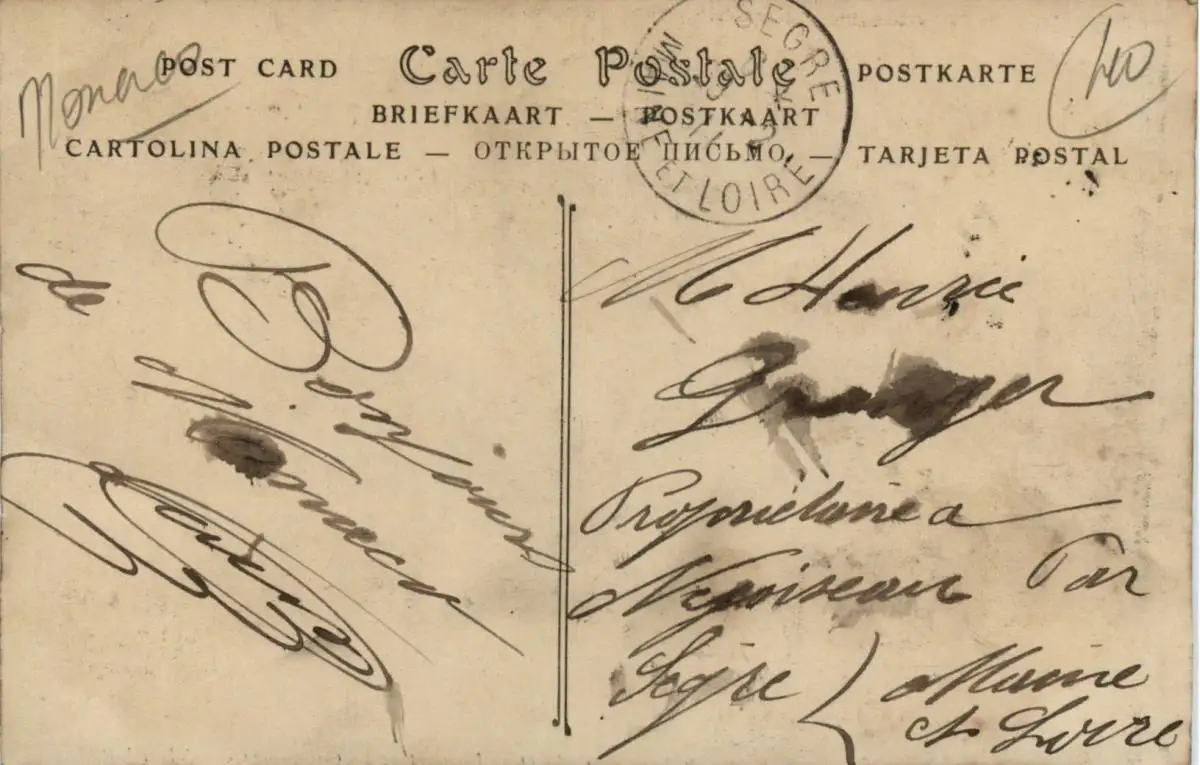 Monaco
POST CARD Carte Postale POSTKARTE
40
BRIEFKAART — POSTKAART
CARTOLINA POSTALE — ОТКРЫТОЕ ПИСЬМО — TARJETA POSTAL
SEGRE
MAINE ET LOIRE
Bonjour
de
Monaco
M Henri
Propriétaire a
Nyoiseau Par
Segré { Maine
et Loire